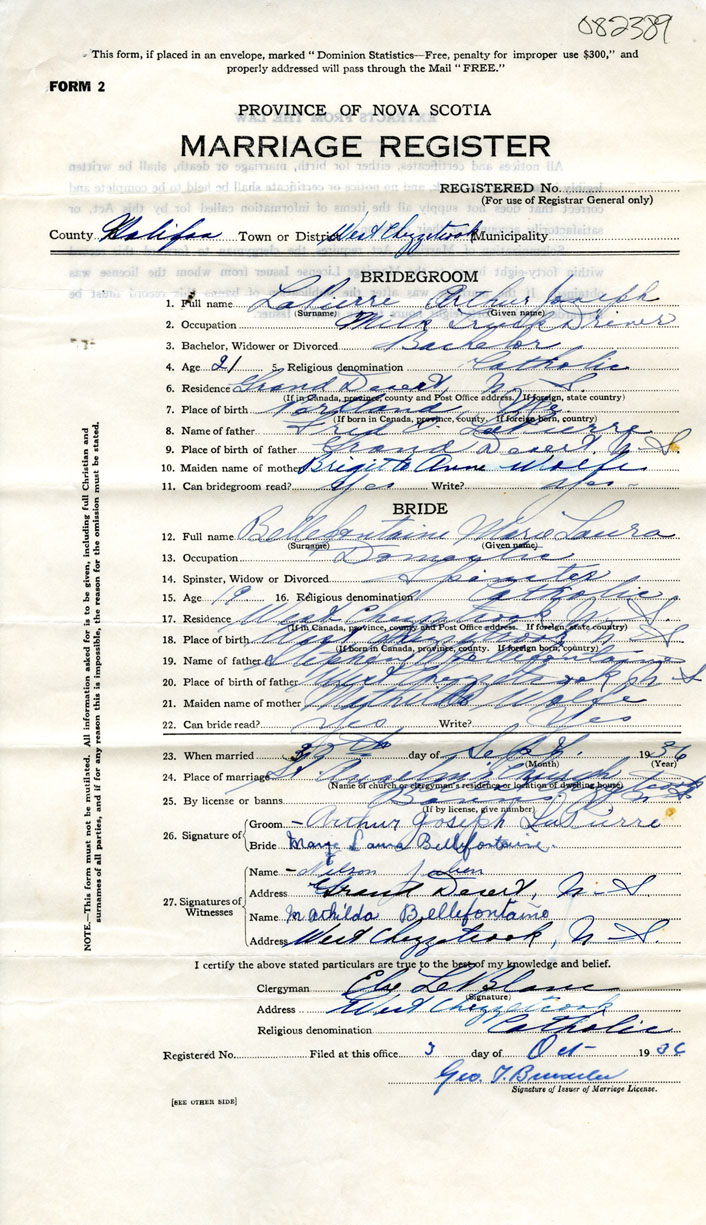 082389
This form, if placed in an envelope, marked "Dominion Statistics—Free, penalty for improper use $300," and
properly addressed will pass through the Mail "FREE."
FORM 2
PROVINCE OF NOVA SCOTIA
MARRIAGE REGISTER
REGISTERED No.
(For use of Registrar General only)
County Halifax Town or District West Chezzetcook Municipality
BRIDEGROOM
1. Full name LaPierre Arthur Joseph
(Surname) (Given name)
2. Occupation Milk Truck Driver
3. Bachelor, Widower or Divorced Bachelor
4. Age 21 5. Religious denomination Catholic
6. Residence Grand Desert, N. S.
(If in Canada, province, county and Post Office address. If foreign, state country)
7. Place of birth Portland
(If born in Canada, province, county. If foreign born, country)
8. Name of father Fred LaPierre
9. Place of birth of father Grand Desert, N. S.
10. Maiden name of mother Brigitte Anne Wolfe
11. Can bridegroom read? Yes Write? Yes
BRIDE
12. Full name Bellefontain Marie Laura
(Surname) (Given name)
13. Occupation Domestic
14. Spinster, Widow or Divorced Spinster
15. Age 19 16. Religious denomination Catholic
17. Residence West Chezzetcook N. S.
(If in Canada, province, county and Post Office address. If foreign, state country)
18. Place of birth West Chezzetcook N. S.
(If born in Canada, province, county. If foreign born, country)
19. Name of father Bellefontaine
20. Place of birth of father West Chezzetcook, N. S.
21. Maiden name of mother
22. Can bride read? Yes Write? Yes
23. When married 30th day of Sept. 1936
(Month) (Year)
24. Place of marriage St Anselm's Church West Chezzetcook
(Name of church or clergyman's residence or location of dwelling house)
25. By license or banns Banns N. S.
(If by license, give number)
26. Signature of
Groom Arthur Joseph LaPierre
Bride Marye Laura Bellefontaine
27. Signatures of Witnesses
Name Nelson Julien
Address Grand Desert, N. S.
Name Mathilda Bellefontaine
Address West Chezzetcook, N. S.
I certify the above stated particulars are true to the best of my knowledge and belief.
Clergyman LeBlanc
(Signature)
Address West Chezzetcook
Religious denomination Catholic
Registered No. Filed at this office 3 day of Oct 1936
Geo. T.
Signature of Issuer of Marriage License.
[SEE OTHER SIDE]
NOTE.—This form must not be mutilated. All information asked for is to be given, including full Christian and
surnames of all parties, and if for any reason this is impossible, the reason for the omission must be stated.